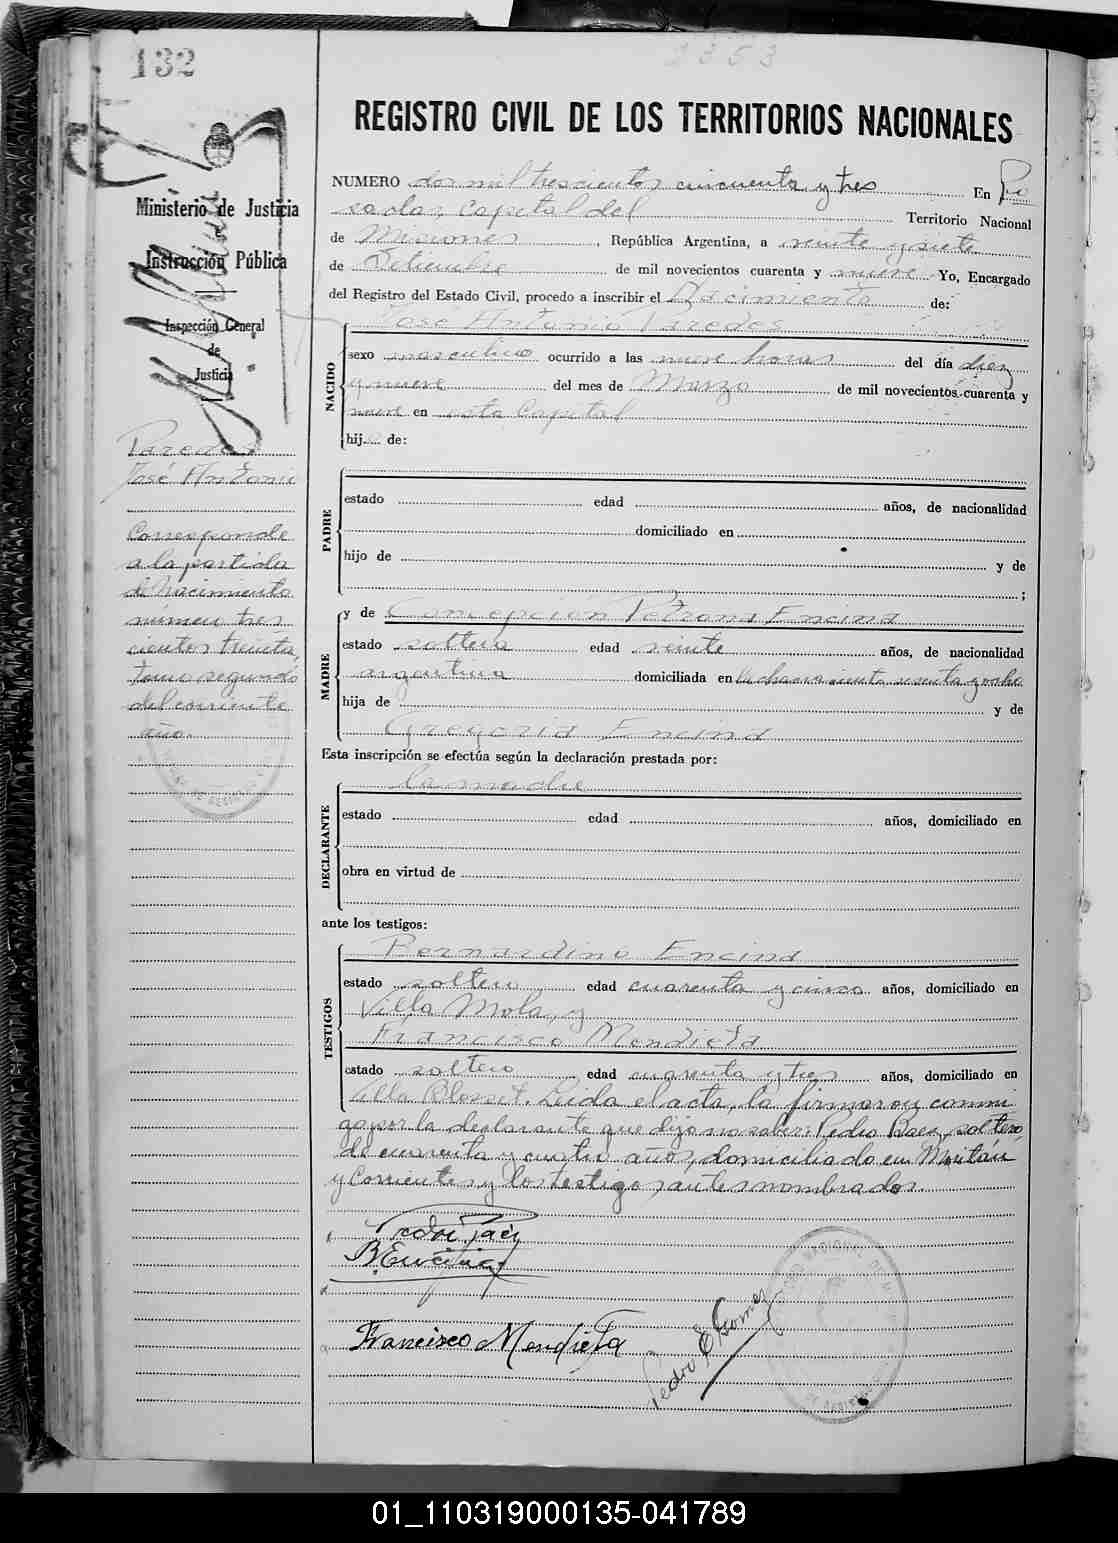 132
2353
REGISTRO CIVIL DE LOS TERRITORIOS NACIONALES
Ministerio de Justicia
e
Instrucción Pública
Inspección General
de
Justicia
Paredes
José Antonio
Corresponde
a la partida
de Nacimiento
número tres
cientos treinta,
tomo segundo
del corriente
año.
NUMERO dos mil trescientos cincuenta y tres En Po
sadas, Capital del Territorio Nacional
de Misiones, República Argentina, a veinte y siete
de Setiembre de mil novecientos cuarenta y nueve Yo, Encargado
del Registro del Estado Civil, procedo a inscribir el Nacimiento de:
José Antonio Paredes
NACIDO
sexo masculino ocurrido a las nueve horas del día diez
y nueve del mes de Marzo de mil novecientos cuarenta y
nueve en esta Capital
hij... de:
PADRE
estado edad años, de nacionalidad
domiciliado en
hijo de y de
;
MADRE
y de Concepción Petrona Encina
estado soltera edad veinte años, de nacionalidad
argentina domiciliada en la chacra ciento sesenta y ocho
hija de y de
Gregoria Encina
Esta inscripción se efectúa según la declaración prestada por:
la madre
DECLARANTE
estado edad años, domiciliado en
obra en virtud de
ante los testigos:
TESTIGOS
Bernardino Encina
estado soltero edad cuarenta y cinco años, domiciliado en
Villa Mola, y
Francisco Mendieta
estado soltero edad cuarenta y tres años, domiciliado en
Villa Blosset. Leida el acta, la firmaron conmi
go, por la declarante que dijo no saber: Pedro Baez, soltero,
de cuarenta y cuatro años, domiciliado en
y Corrientes y los testigos antes nombrados.
Pedro Paez
B. Encina
Francisco Mendieta
Pedro E Gomez
01_110319000135-041789